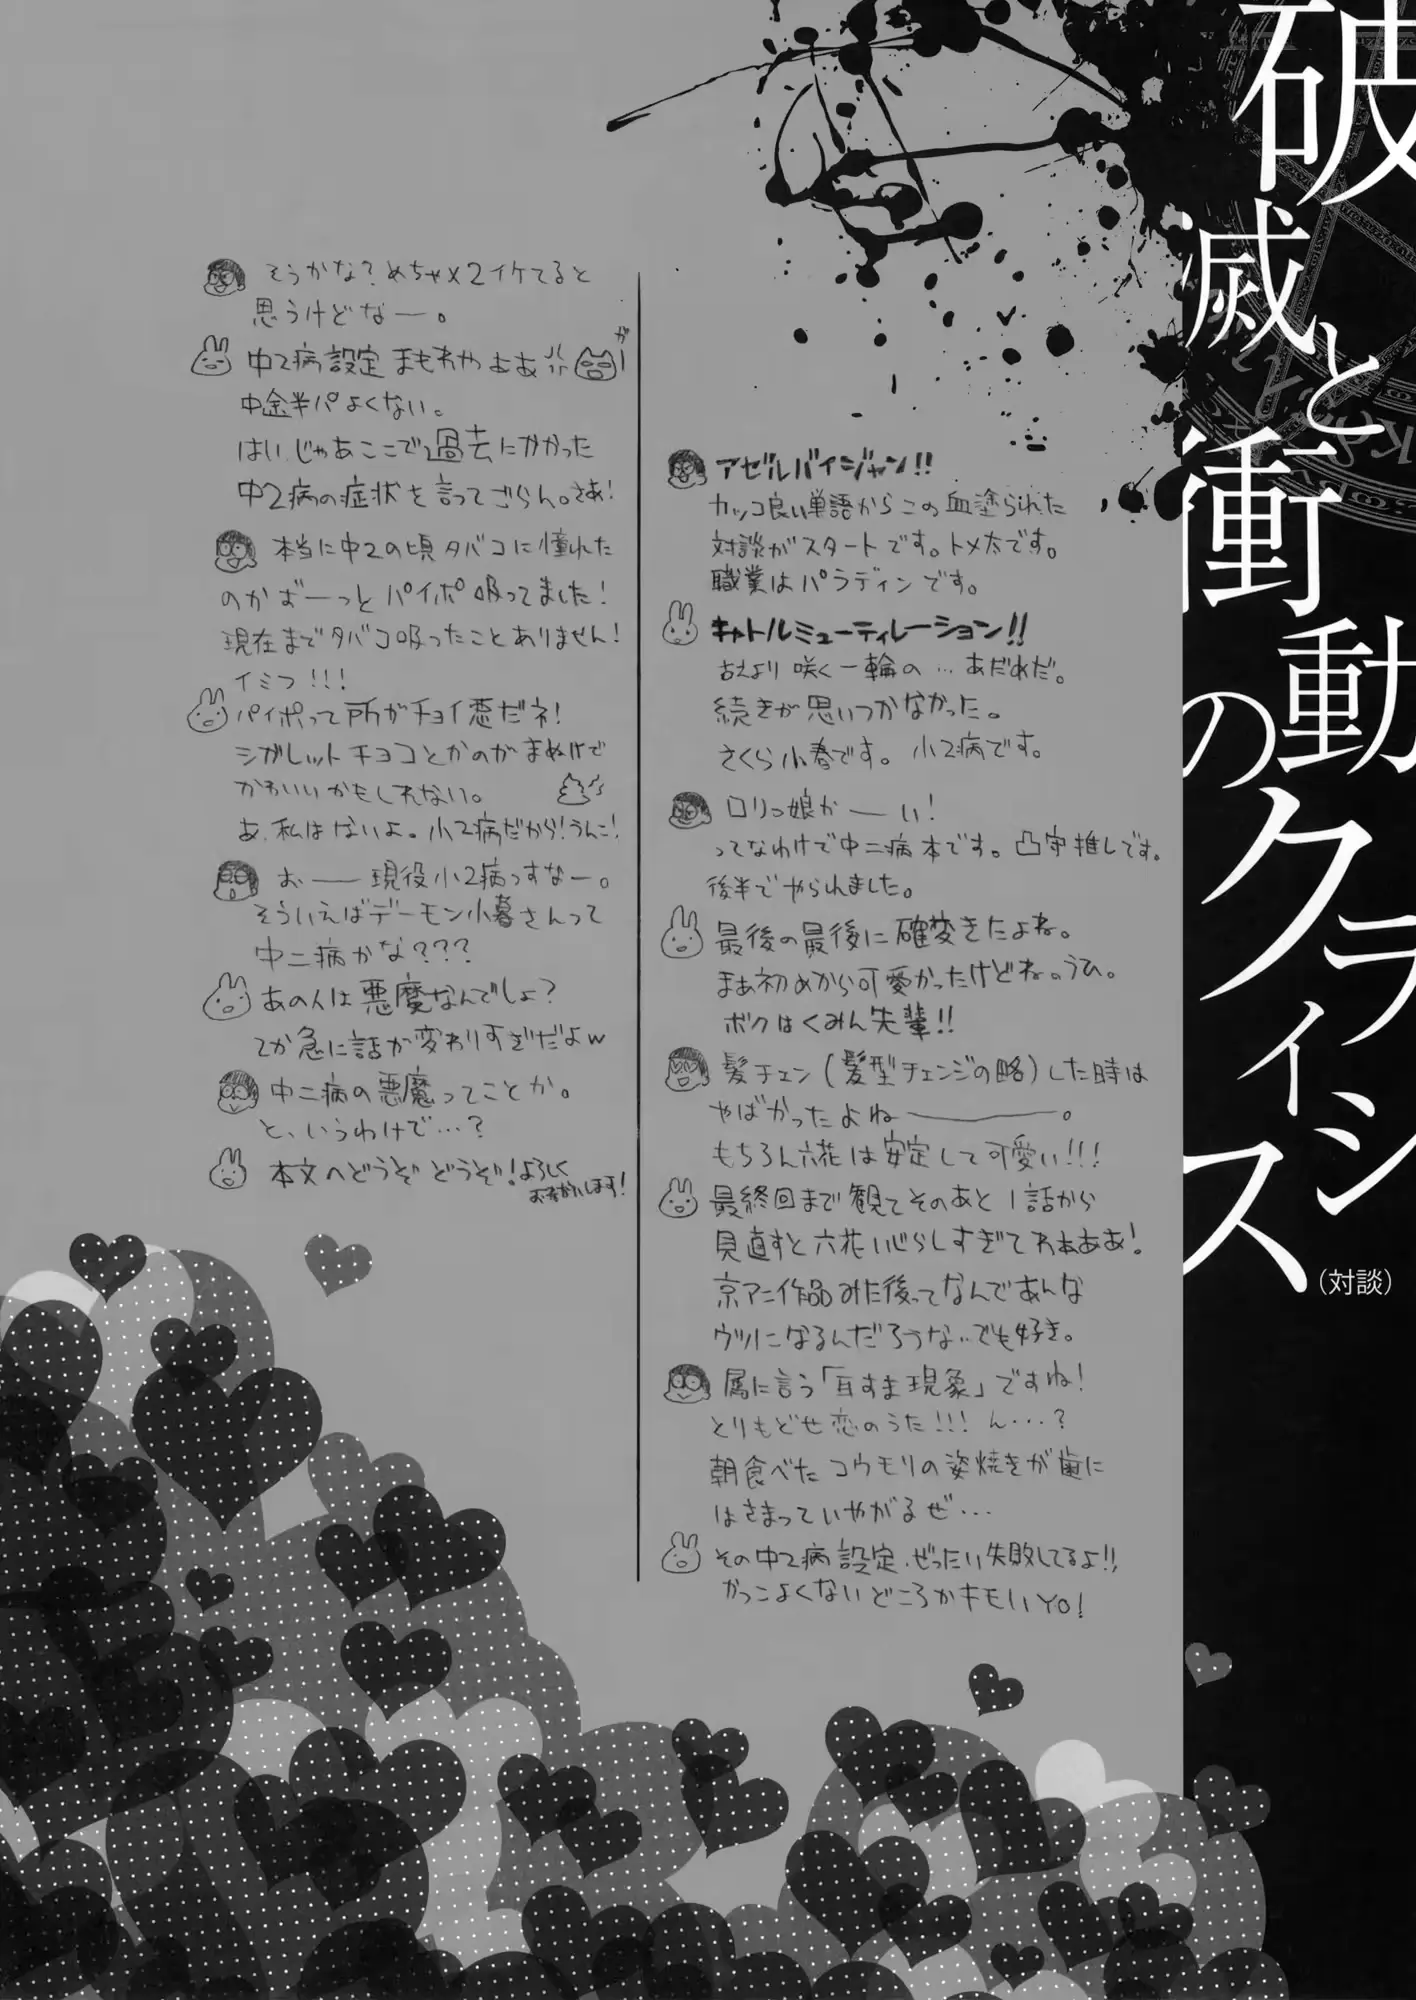 破滅と衝動のクライシス
（対談）
アゼルバイジャン!!
カッコ良い単語からこの血塗られた
対談がスタートです。トメ太です。
職業はパラディンです。
キャトルミューティレーション!!
古えより咲く一輪の…あだれだ。
続きが思いつかなかった。
さくら小春です。小2病です。
ロリっ娘かーい!
ってなわけで中二病本です。凸守推しです。
後半でやられました。
最後の最後に確変きたよね。
まぁ初めから可愛かったけどね。うひ。
ボクはくみん先輩!!
髪チェン(髪型チェンジの略)した時は
やばかったよねー。
もちろん六花は安定して可愛い!!!
最終回まで観てそのあと1話から
見直すと六花いじらしすぎてわぁああ!
京アニ作品みた後ってなんであんな
ウツになるんだろうな‥でも好き。
属に言う「耳すま現象」ですね!
とりもどせ恋のうた!!! ん…?
朝食べたコウモリの姿焼きが歯に
はさまっていやがるぜ…
その中2病設定、ぜったい失敗してるよ!!
かっこよくないどころかキモいYO!
そうかな?めちゃメ2イケてると
思うけどなー。
中2病設定まもれやぁぁ
がー
中途半パよくない。
はいじゃあここで過去にかかった
中2病の症状を言ってごらん。さあ!
本当に中2の頃タバコに憧れた
のかずーっとパイポ吸ってました!
現在までタバコ吸ったことありません!
イミフ!!!
パイポって所がチョイ悪だネ!
シガレットチョコとかのがまぬけで
かわいいかもしれない。
あ、私はないよ。小2病だから!うんこ!
おー現役小2病っすなー。
そういえばデーモン小暮さんって
中二病かな???
あの人は悪魔なんでしょ?
てか急に話が変わりすぎだよw
中二病の悪魔ってことか。
と、いうわけで…?
本文へどうぞどうぞ!よろしく
お願いします!